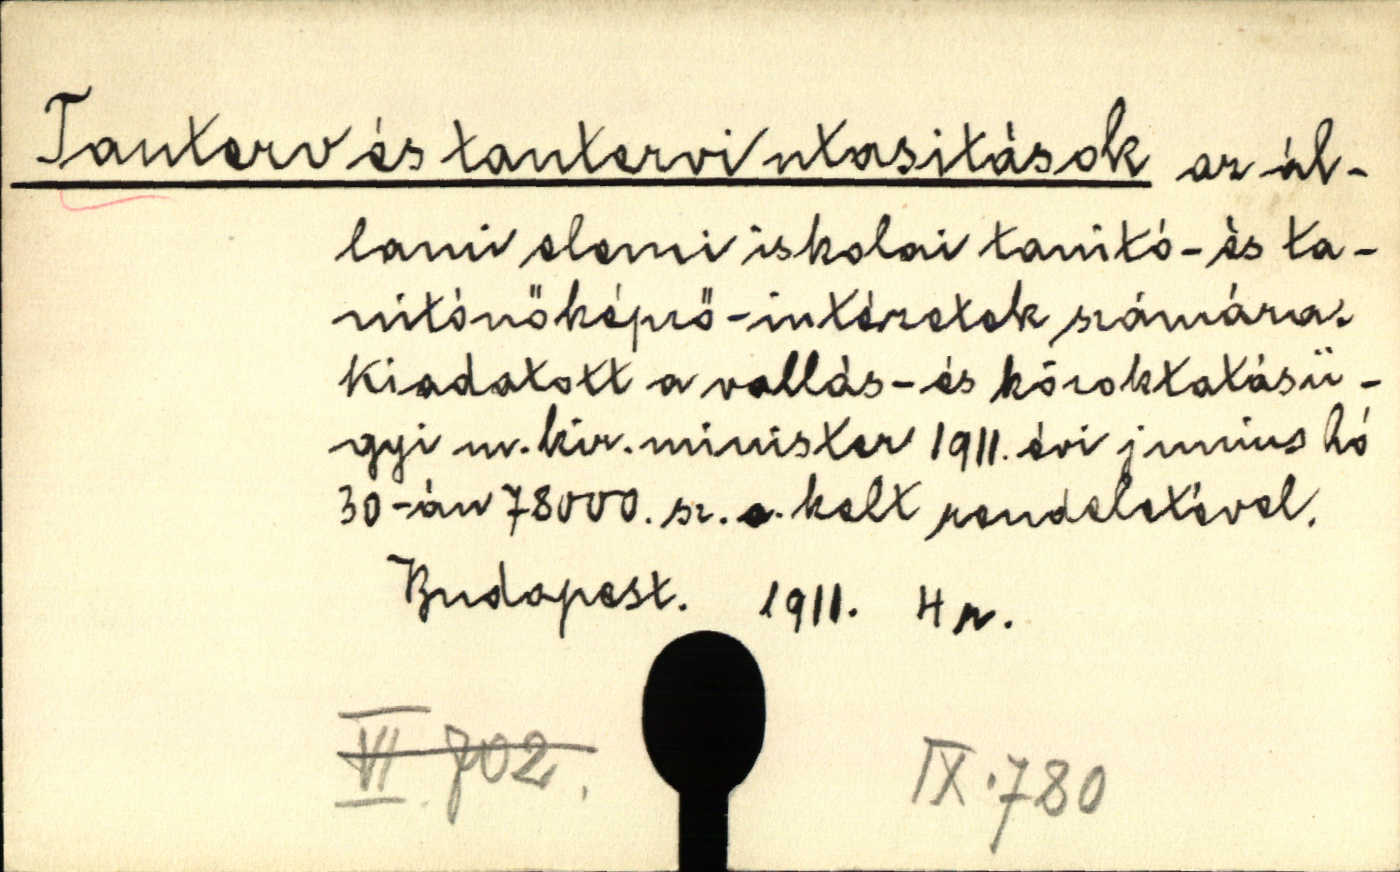 Tanterv és tantervi utasitások az ál-
lami elemi iskolai tanitó- és ta-
nitónőképző-intézetek számára.
Kiadatott a vallás- és közoktatásü-
gyi m. kir. minister 1911. évi junius hó
30-án 78000. sz. a. kelt rendeletével.
Budapest. 1911. 4 r.
VI 702. IX. 780